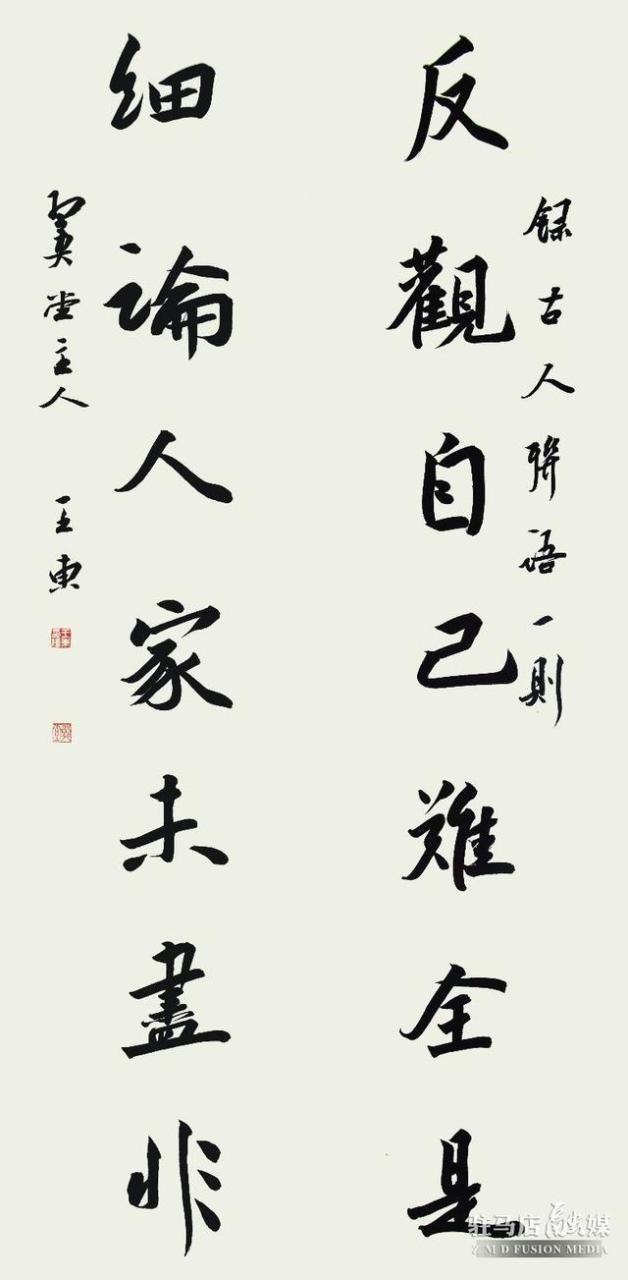 録古人聯語一則
反觀自己難全是
細論人家未盡非
堂主人 王東
驻马店融媒
Z M D FUSION MEDIA